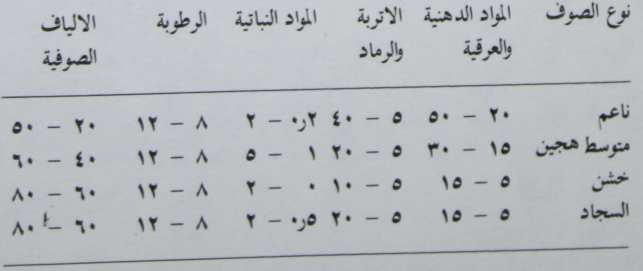 نوع الصوف المواد الدهنية الاتربة المواد النباتية الرطوبة الالياف
والعرقية والرماد الصوفية
ناعم ٢٠ – ٥٠ ٥ – ٤٠ ٢ر٠ – ٢ ٨ – ١٢ ٢٠ – ٥٠
متوسط هجين ١٥ – ٣٠ ٥ – ٢٠ ١ – ٥ ٨ – ١٢ ٤٠ – ٦٠
خشن ٥ – ١٥ ٥ – ١٠ ٠ – ٢ ٨ – ١٢ ٦٠ – ٨٠
السجاد ٥ – ١٥ ٥ – ٢٠ ٥ر٠ – ٢ ٨ – ١٢ ٦٠ – ٨٠